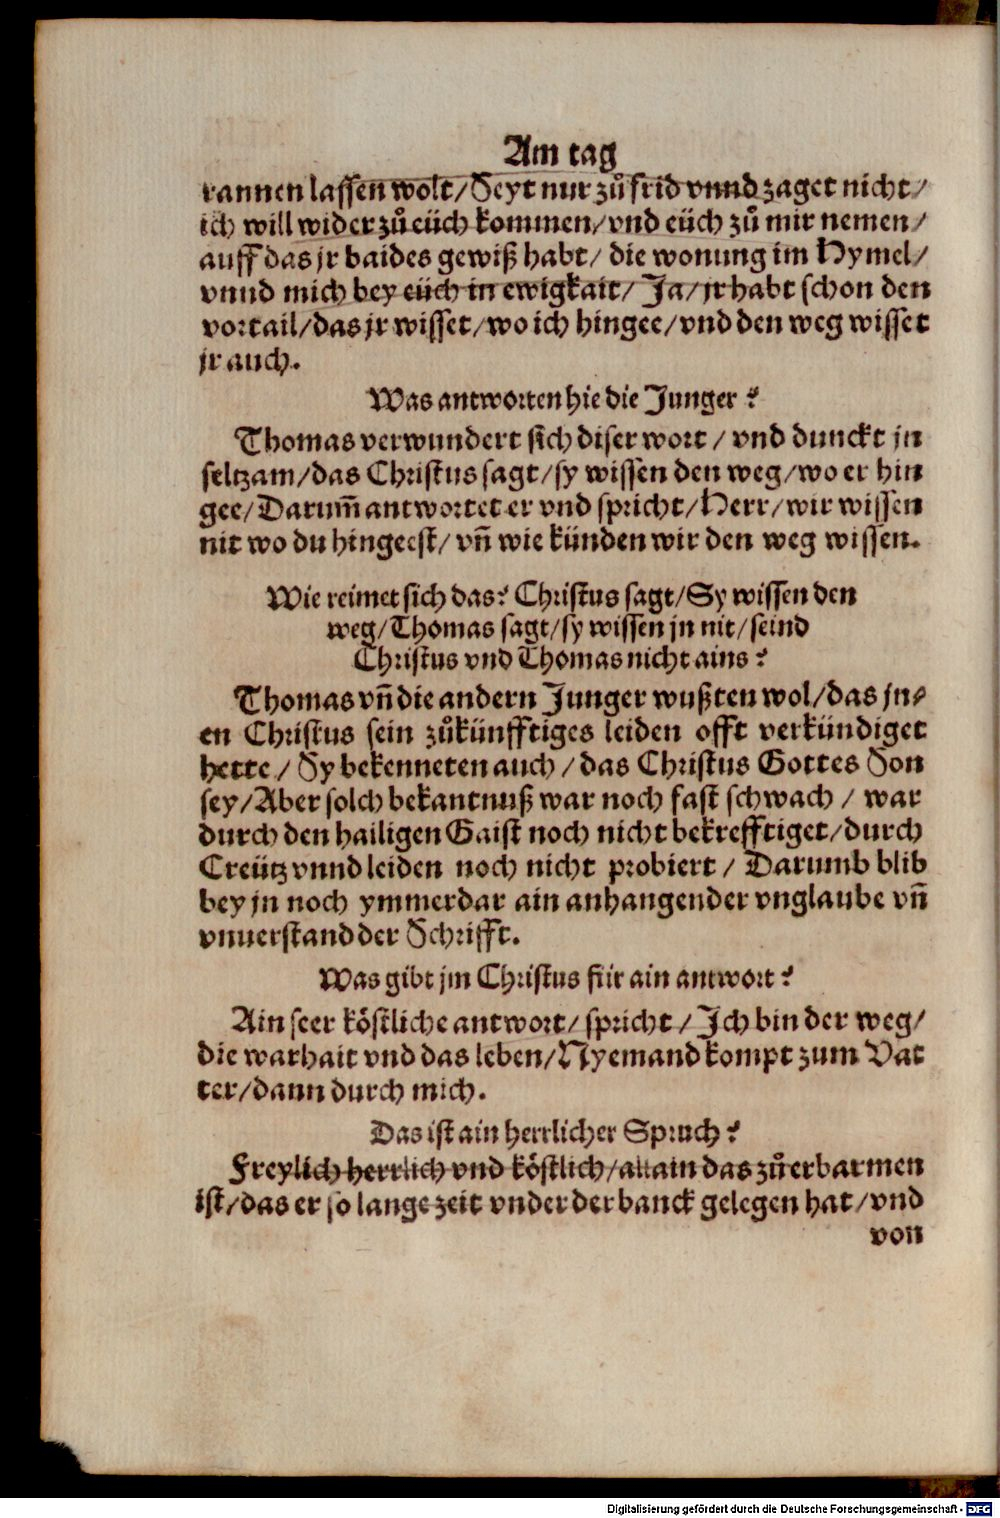 Am tag
rannen lassen wolt/ Seyt nur zů frid vnnd zaget nicht/
ich will wider zů eüch kommen/ vnd eüch zů mir nemen/
auff das jr baides gewiß habt/ die wonung im Hymel/
vnnd mich bey eüch in ewigkait/ Ja/ jr habt schon den
vortail/ das jr wisset/ wo ich hingee/ vnd den weg wisset
jr auch.
Was antworten hie die Junger?
Thomas verwundert sich diser wort/ vnd dunckt jn
seltzam/ das Christus sagt/ sy wissen den weg/ wo er hin
gee/ Darum̃ antwortet er vnd spricht/ Herr/ wir wissen
nit wo du hingeest/ vñ wie künden wir den weg wissen.
Wie reimet sich das? Christus sagt/ Sy wissen den
weg/ Thomas sagt/ sy wissen jn nit/ seind
Christus vnd Thomas nicht ains?
Thomas vñ die andern Junger wußten wol/ das jn⸗
en Christus sein zůkünfftiges leiden offt verkündiget
hette/ Sy bekenneten auch/ das Christus Gottes Son
sey/ Aber solch bekantnuß war noch fast schwach/ war
durch den hailigen Gaist noch nicht bekrefftiget/ durch
Creütz vnnd leiden noch nicht probiert/ Darumb blib
bey jn noch ymmerdar ain anhangender vnglaube vñ
vnuerstand der Schrifft.
Was gibt jm Christus für ain antwort?
Ain seer köstliche antwort/ spricht/ Ich bin der weg/
die warhait vnd das leben/ Nyemand kompt zum Vat
ter/ dann durch mich.
Das ist ain herrlicher Spruch?
Freylich herrlich vnd köstlich/ allain das zů erbarmen
ist/ das er so lange zeit vnder der banck gelegen hat/ vnd
von
Digitalisierung gefördert durch die Deutsche Forschungsgemeinschaft - DFG